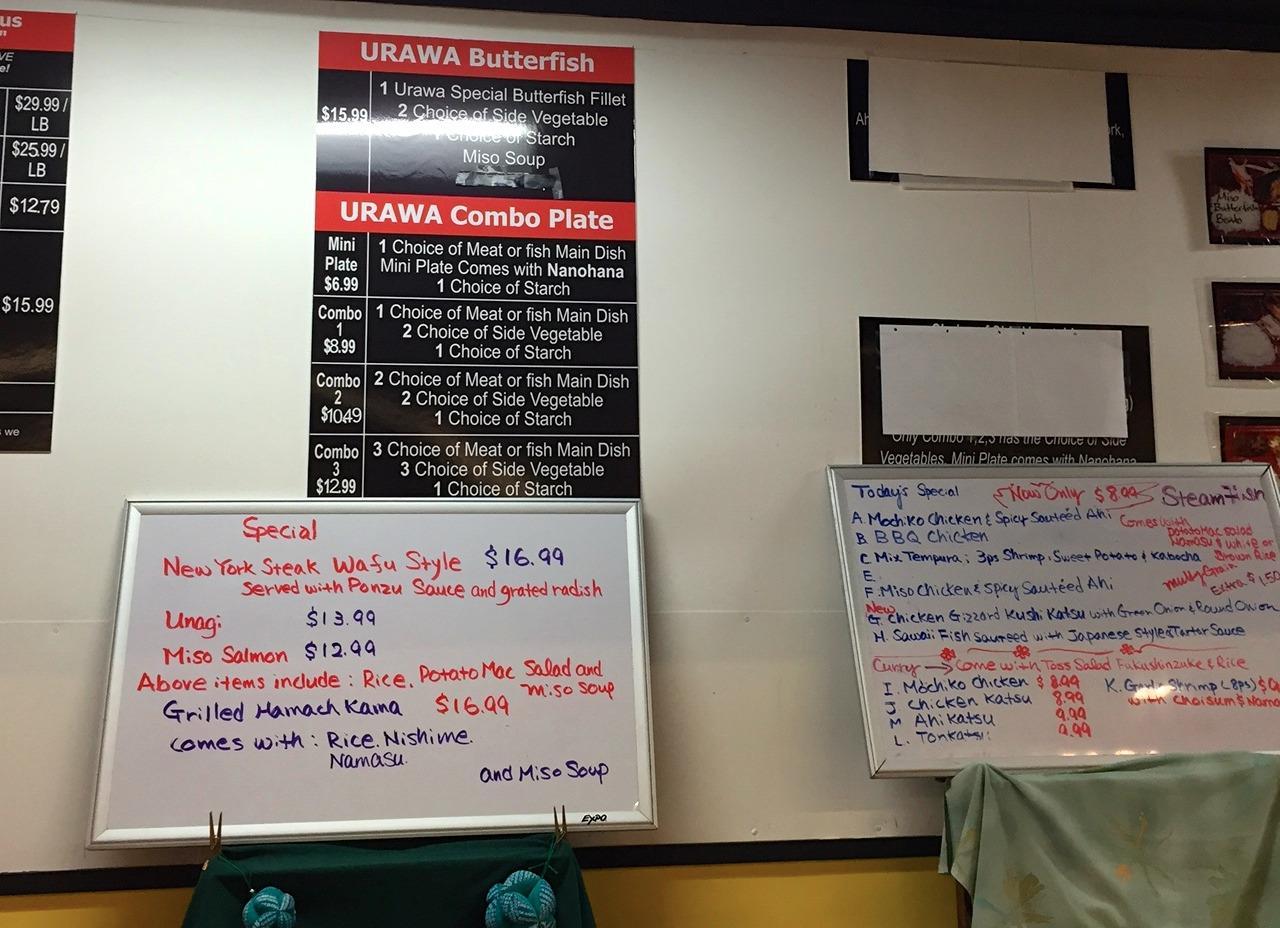 us
VE
e!
$29.99 /
LB
$25.99 /
LB
$12.79
$15.99
s we
URAWA Butterfish
$15.99
1 Urawa Special Butterfish Fillet
2 Choice of Side Vegetable
1 Choice of Starch
Miso Soup
URAWA Combo Plate
Mini Plate $6.99
1 Choice of Meat or fish Main Dish
Mini Plate Comes with Nanohana
1 Choice of Starch
Combo 1 $8.99
1 Choice of Meat or fish Main Dish
2 Choice of Side Vegetable
1 Choice of Starch
Combo 2 $10.49
2 Choice of Meat or fish Main Dish
2 Choice of Side Vegetable
1 Choice of Starch
Combo 3 $12.99
3 Choice of Meat or fish Main Dish
3 Choice of Side Vegetable
1 Choice of Starch
Special
New York Steak Wafu Style $16.99
Served with Ponzu Sauce and grated radish
Unagi $13.99
Miso Salmon $12.99
Above items include : Rice. Potato Mac Salad and
miso soup
Grilled Hamach Kama $16.99
comes with : Rice. Nishime.
Namasu.
and Miso Soup
EXPO
Ah
rk,
Only Combo 1,2,3 has the Choice of Side
Vegetables. Mini Plate comes with Nanohana
Miso
Butterfish
Bento
Today's Special Now Only $8.99 Steam Fish
A. Mochiko Chicken & Spicy Sautéed Ahi
B BBQ Chicken
C Mix Tempura; 3ps Shrimp, Sweet Potato & Kabocha
E.
F. Miso Chicken & Spicy Sautéed Ahi
Comes with
potato Mac salad
Namasu & white or
Brown Rice
multy Grain
Extra $1.50
New
G. Chicken Gizzard Kushi Katsu with Green Onion & Round Onion
H. Sawaii Fish sauteed with Japanese style Tartar Sauce
Curry → Come with Toss Salad Fukushinzuke & Rice
I. Mochiko Chicken $8.99
J Chicken Katsu 8.99
M Ahi Katsu 9.99
L. Tonkatsu: 9.99
K. Shrimp (8ps)
with Choisum &